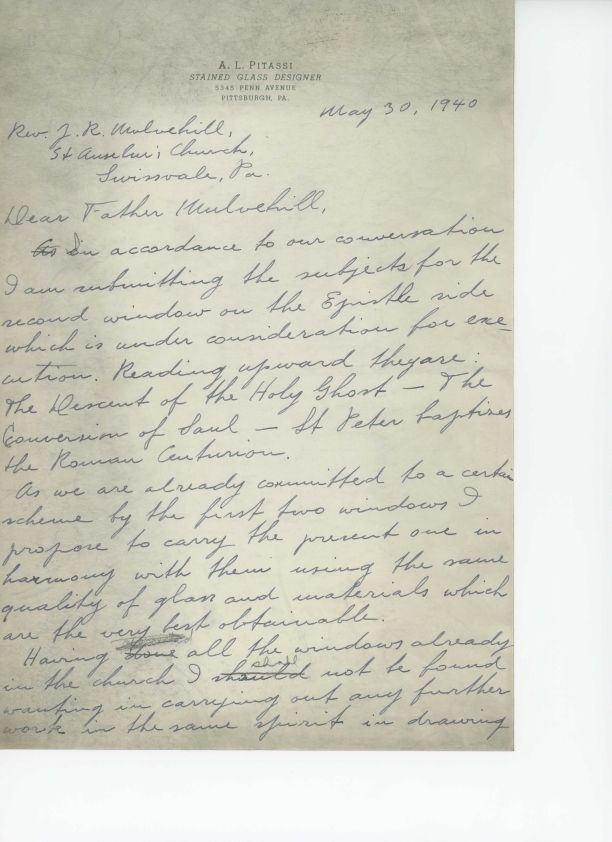 A. L. PITASSI
STAINED GLASS DESIGNER
5345 PENN AVENUE
PITTSBURGH, PA.
May 30, 1940
Rev. J. R. Mulvehill,
St Anselm's Church,
Swissvale, Pa.
Dear Father Mulvehill,
As In accordance to our conversation
I am submitting the subjects for the
second window on the Epistle side
which is under consideration for exe-
cution. Reading upward they are:
The Descent of the Holy Ghost — The
Conversion of Saul — St Peter baptizes
the Roman Centurion.
As we are already committed to a certain
scheme by the first two windows I
propose to carry the present one in
harmony with them using the same
quality of glass and materials which
are the very best obtainable.
Having done all the windows already
in the church I should shall not be found
wanting in carrying out any further
work in the same spirit in drawing